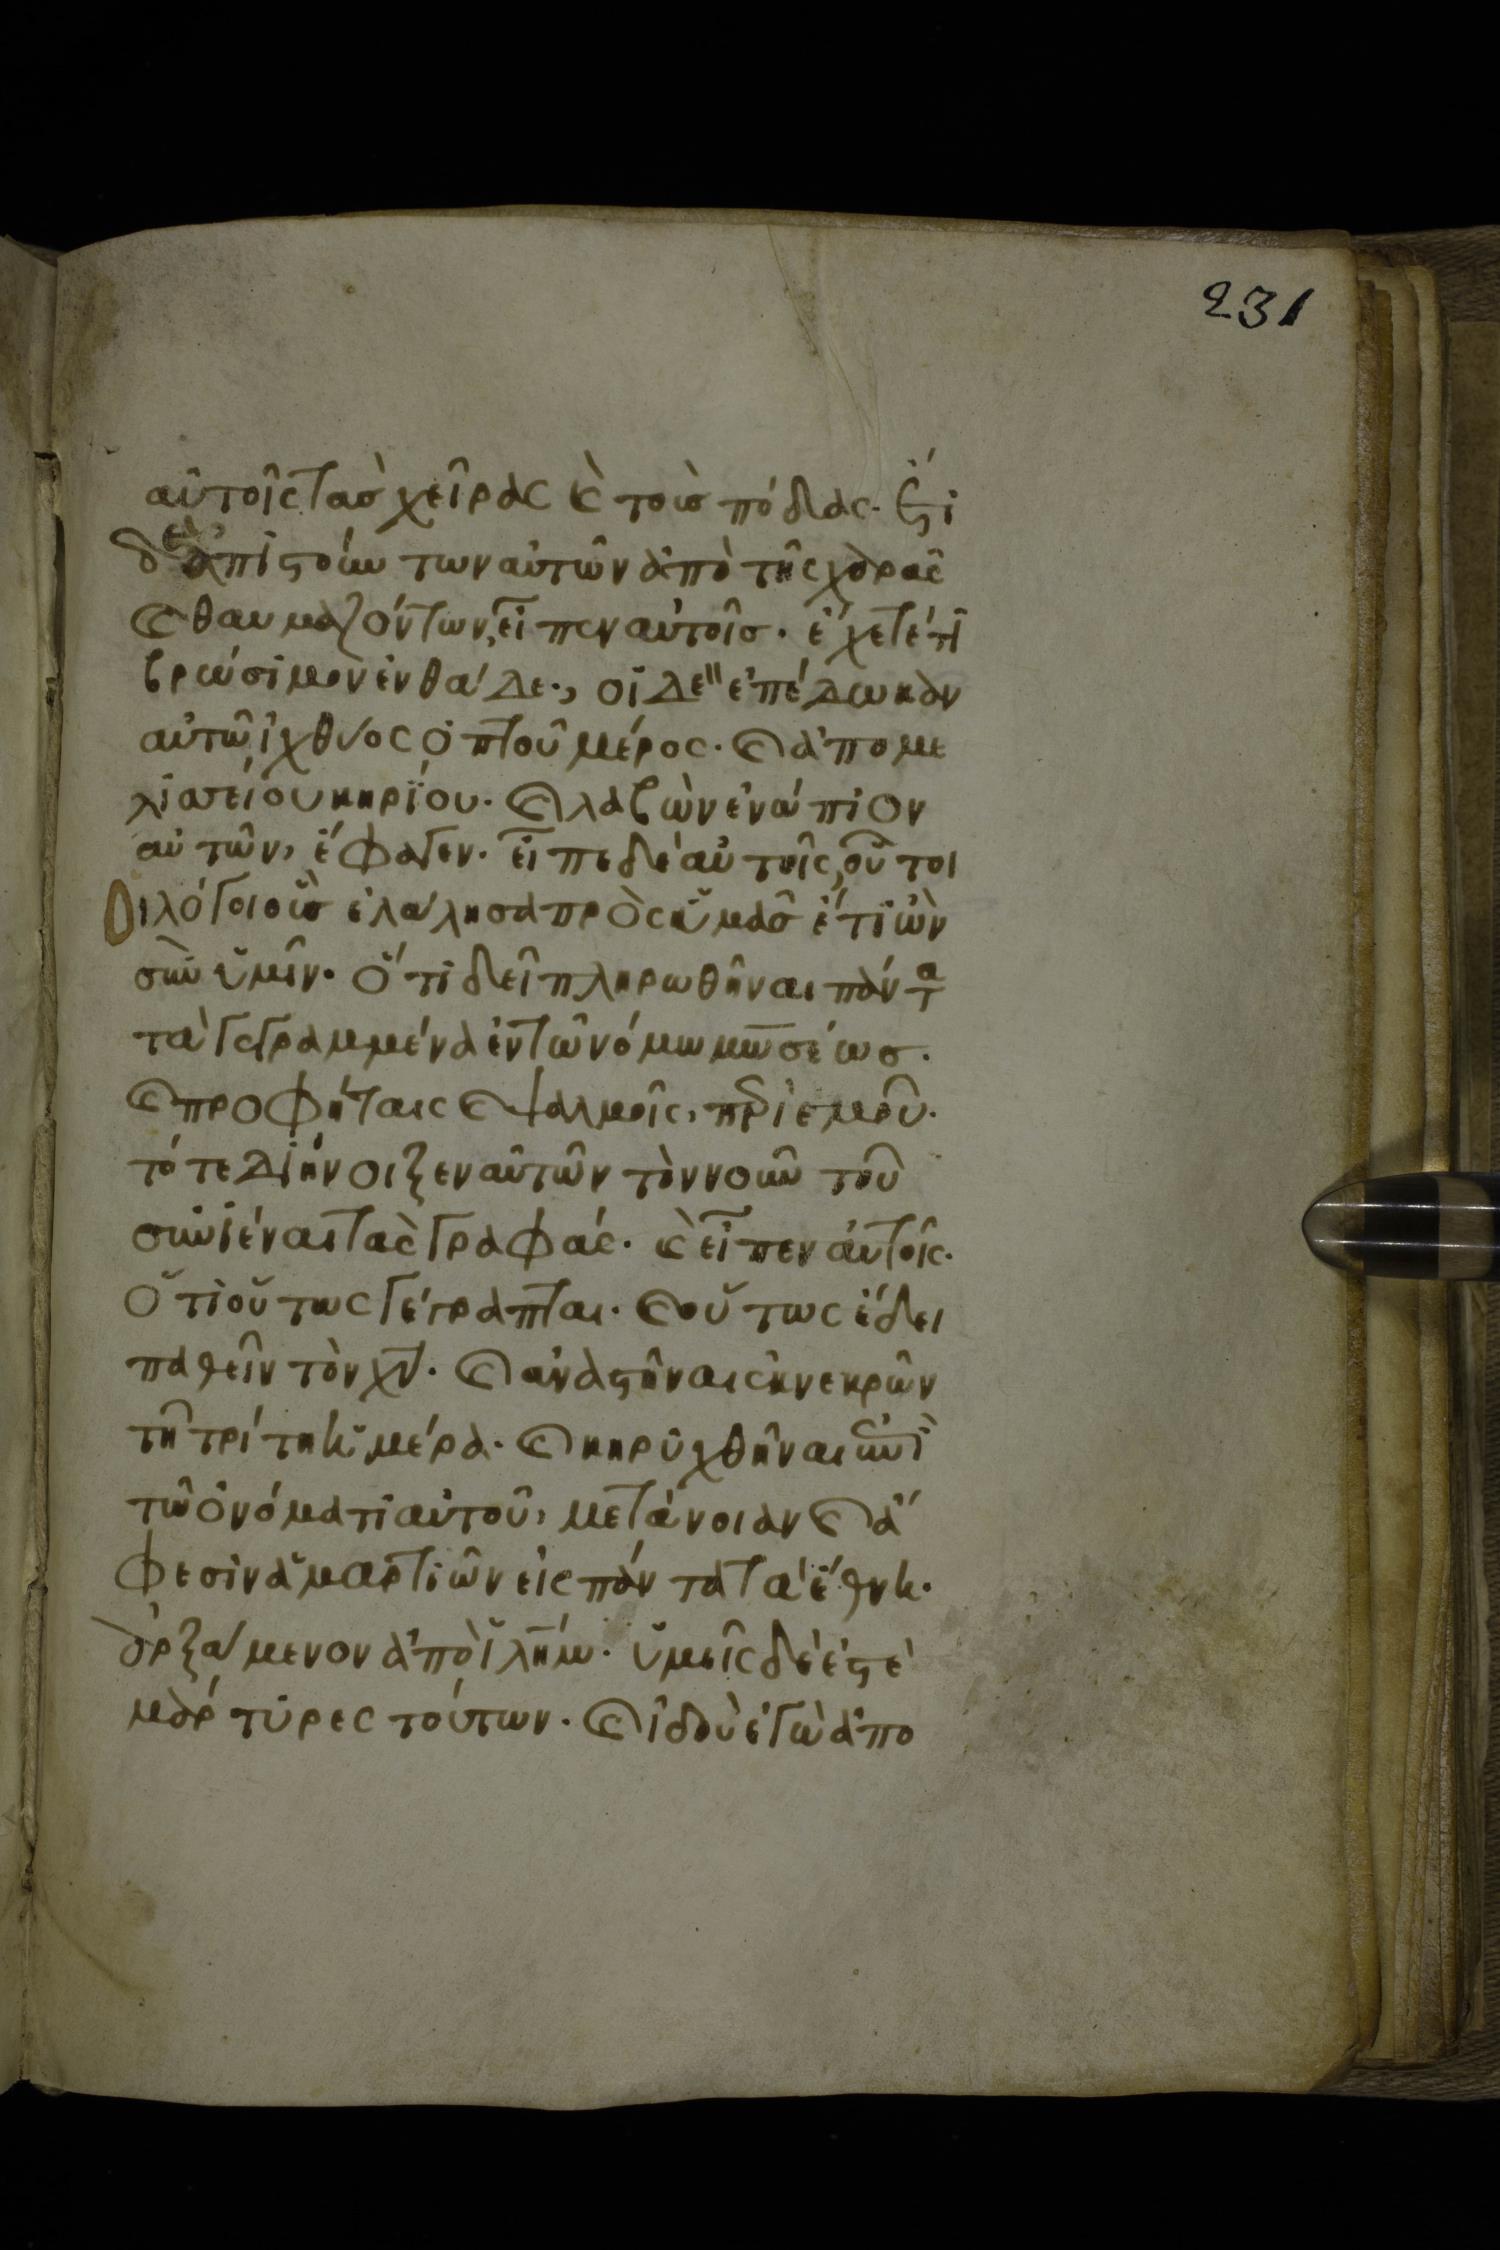 231
αὐτοῖς τὰς χεῖρας κ̀ τοὺς πόδας· ἔτι
δὲ ἀπιστούντων αὐτῶν ἀπὸ τῆς χαρᾶς
κ̀ θαυμαζόντων, εἶπεν αὐτοῖς· ἔχετέ τι
βρώσιμον ἐνθάδε·, οἱ δὲ ἐπέδωκαν
αὐτῶ ἰχθύος ὀπτοῦ μέρος· κ̀ ἀπὸ με
λισσείου κηρίου· κ̀ λαβὼν ἐνώπιον
αὐτῶν, ἔφαγεν· εἶπε δὲ αὐτοῖς, οὗτοι
οἱ λόγοι οὓς ἐλάλησα πρὸς ὑμᾶς ἔτι ὢν
σὺν ὑμῖν· ὅτι δεῖ πληρωθῆναι πάντα
τὰ γεγραμμένα ἐν τῶ νόμω μωσέως·
κ̀ προφήταις κ̀ ψαλμοῖς, περὶ ἐμοῦ·
τότε διήνοιξεν αὐτῶν τὸν νοῦν τοῦ
συνιέναι τὰς γραφάς· κ̀ εἶπεν αὐτοῖς·
ὅτι οὕτως γέγραπται· κ̀ οὕτως ἔδει
παθεῖν τὸν χν̄· κ̀ ἀναστῆναι ἐκ νεκρῶν
τῆ τρίτη ἡμέρα· κ̀ κηρυχθῆναι ἐπὶ
τῶ ὀνόματι αὐτοῦ, μετάνοιαν κ̀ ἄ
φεσιν ἁμαρτιῶν εἰς πάντα τὰ ἔθνη·
ἀρξάμενον ἀπὸ ἱλημ̄· ὑμεῖς δέ ἐστε
μάρτυρες τούτων· κ̀ ἰδοὺ ἐγὼ ἀπο